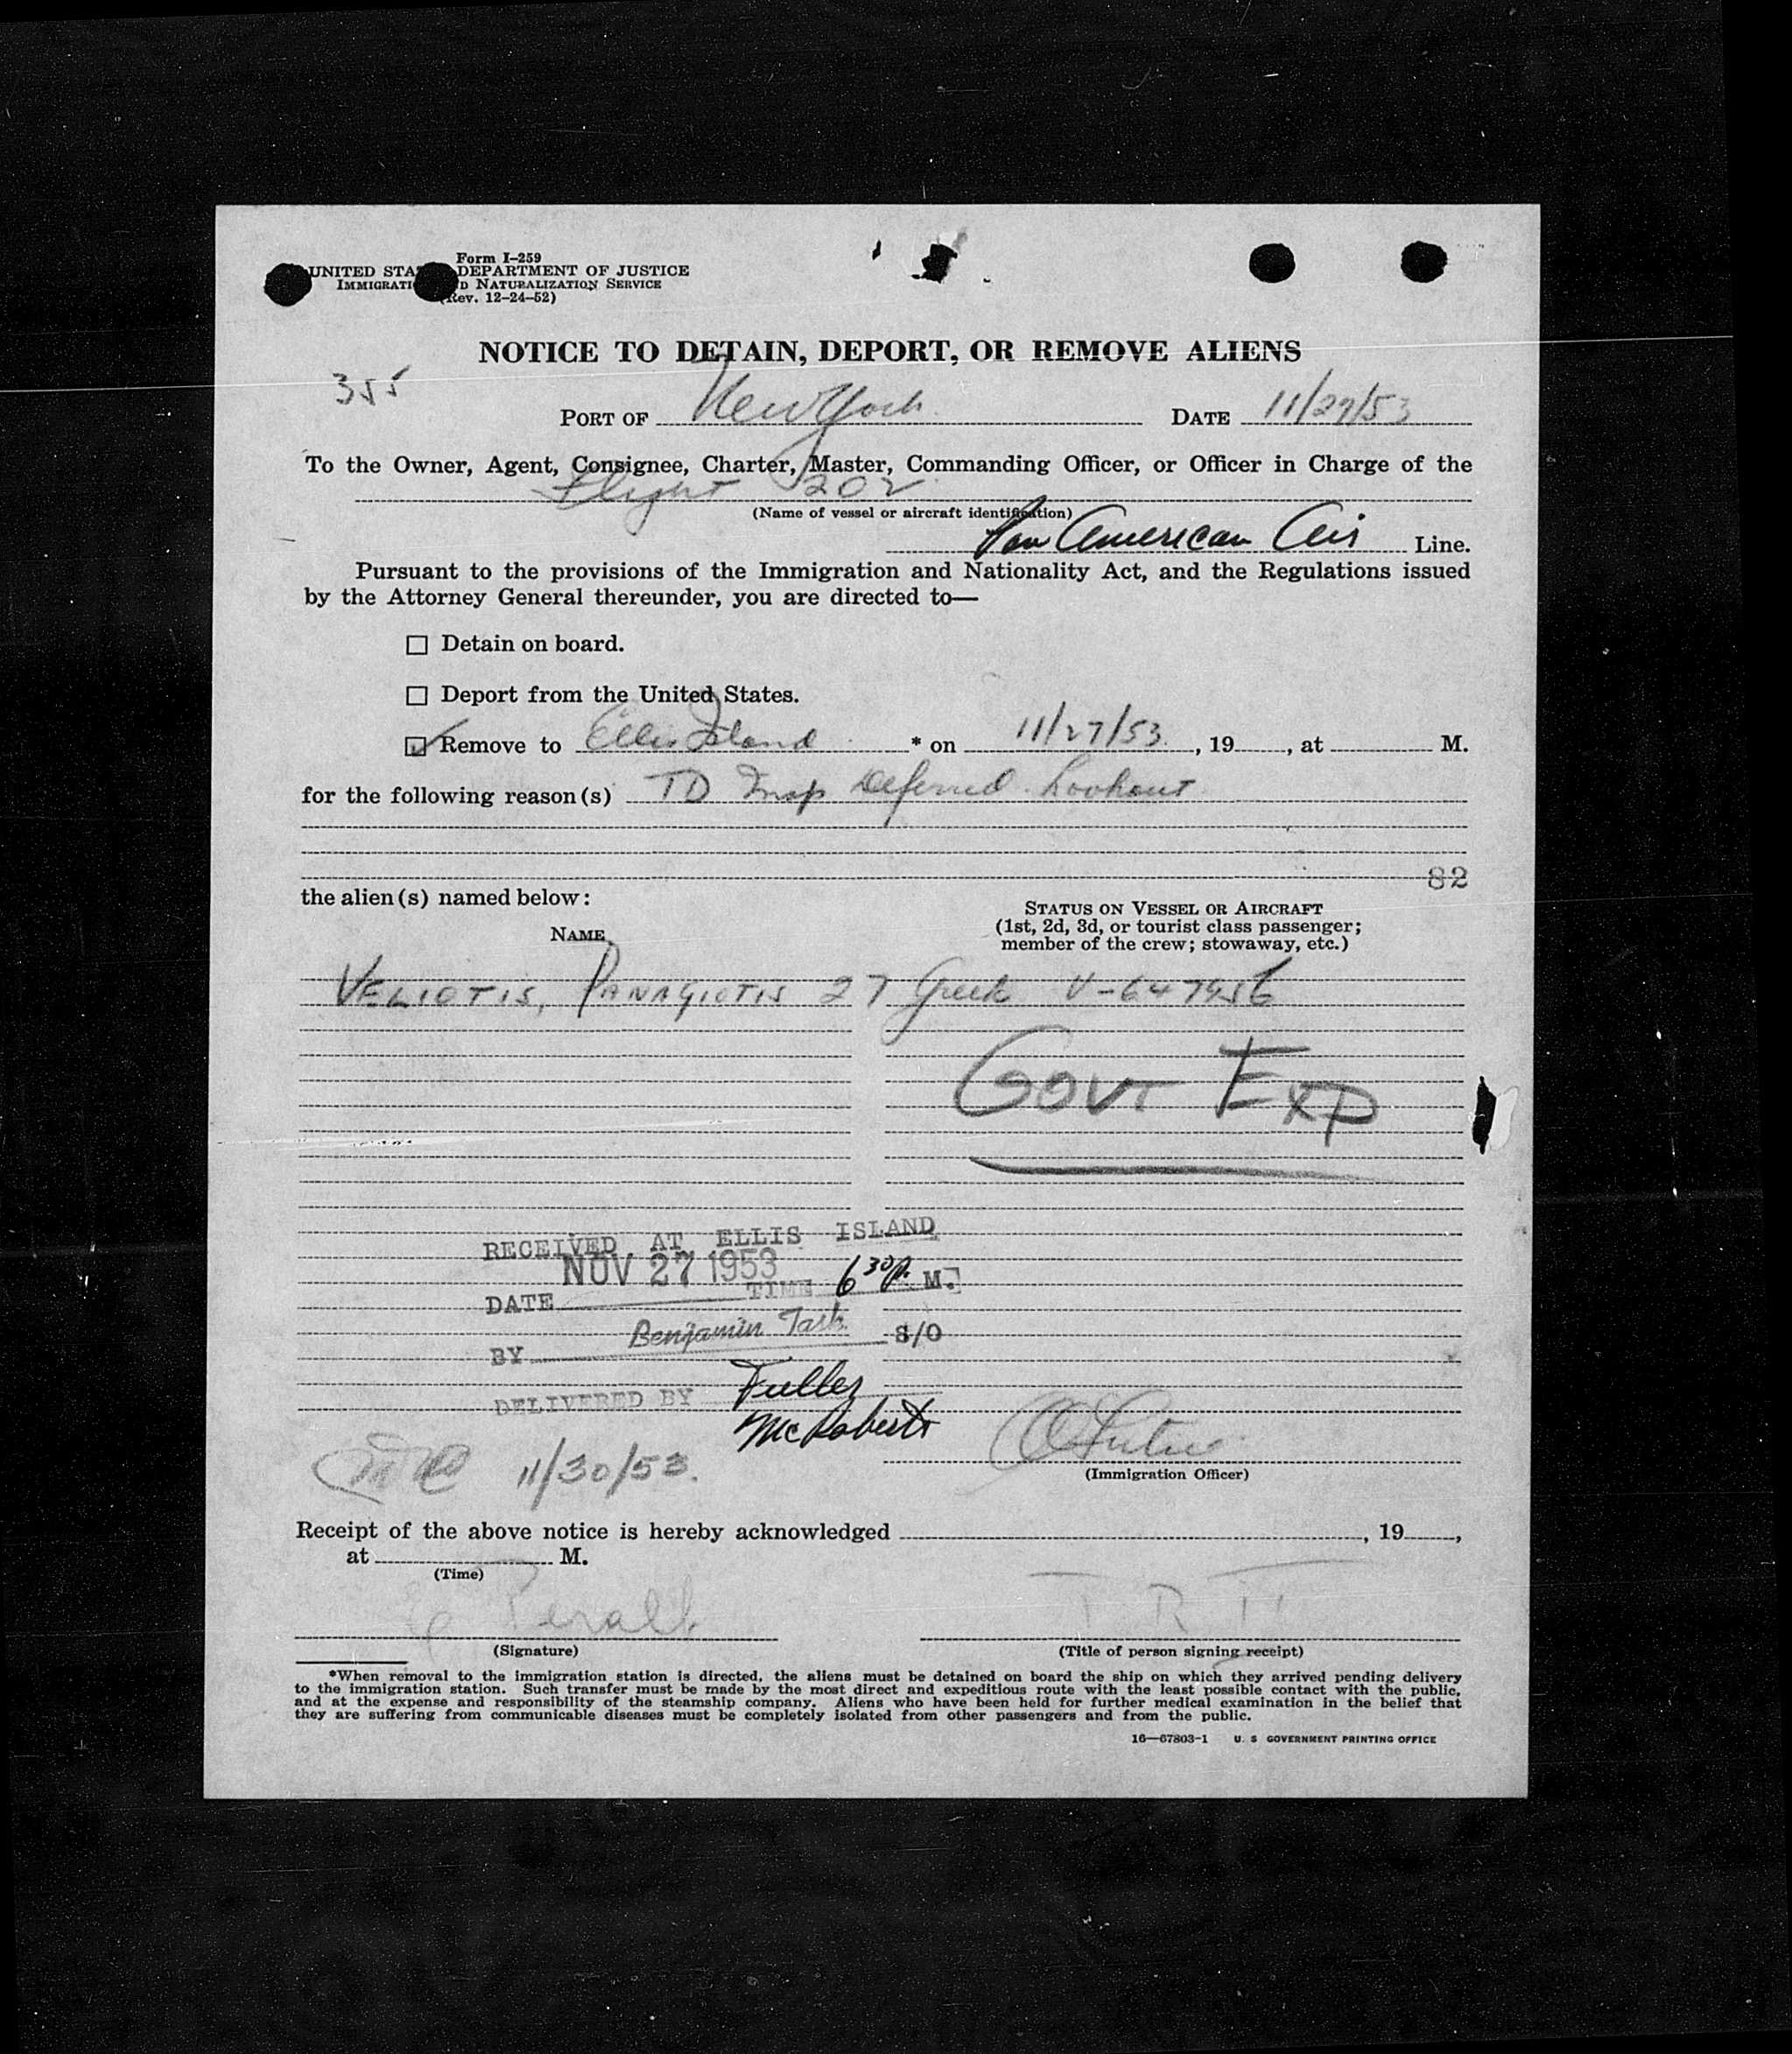 Form I-259
UNITED STA DEPARTMENT OF JUSTICE
IMMIGRATI D NATURALIZATION SERVICE
(Rev. 12-24-52)
NOTICE TO DETAIN, DEPORT, OR REMOVE ALIENS
355
PORT OF New York DATE 11/27/53
To the Owner, Agent, Consignee, Charter, Master, Commanding Officer, or Officer in Charge of the
Flight 202
(Name of vessel or aircraft identification)
Pan American Air Line.
Pursuant to the provisions of the Immigration and Nationality Act, and the Regulations issued
by the Attorney General thereunder, you are directed to—
☐ Detain on board.
☐ Deport from the United States.
☑ Remove to Ellis Island * on 11/27/53, 19, at M.
for the following reason(s) TD Insp Deferred Lookout
82
the alien(s) named below:
STATUS ON VESSEL OR AIRCRAFT
(1st, 2d, 3d, or tourist class passenger;
member of the crew; stowaway, etc.)
NAME
VELIOTIS, PANAGIOTIS 27 Greek V-647956
GOVT EXP
RECEIVED AT ELLIS ISLAND
NOV 27 1953
DATE TIME 6 30 P. M.
BY Benjamin Task S/O
DELIVERED BY Fuller
McRoberts
11/30/53.
(Immigration Officer)
Receipt of the above notice is hereby acknowledged , 19 ,
at M.
(Time)
(Signature) (Title of person signing receipt)
*When removal to the immigration station is directed, the aliens must be detained on board the ship on which they arrived pending delivery
to the immigration station. Such transfer must be made by the most direct and expeditious route with the least possible contact with the public,
and at the expense and responsibility of the steamship company. Aliens who have been held for further medical examination in the belief that
they are suffering from communicable diseases must be completely isolated from other passengers and from the public.
16—67803-1 U. S GOVERNMENT PRINTING OFFICE